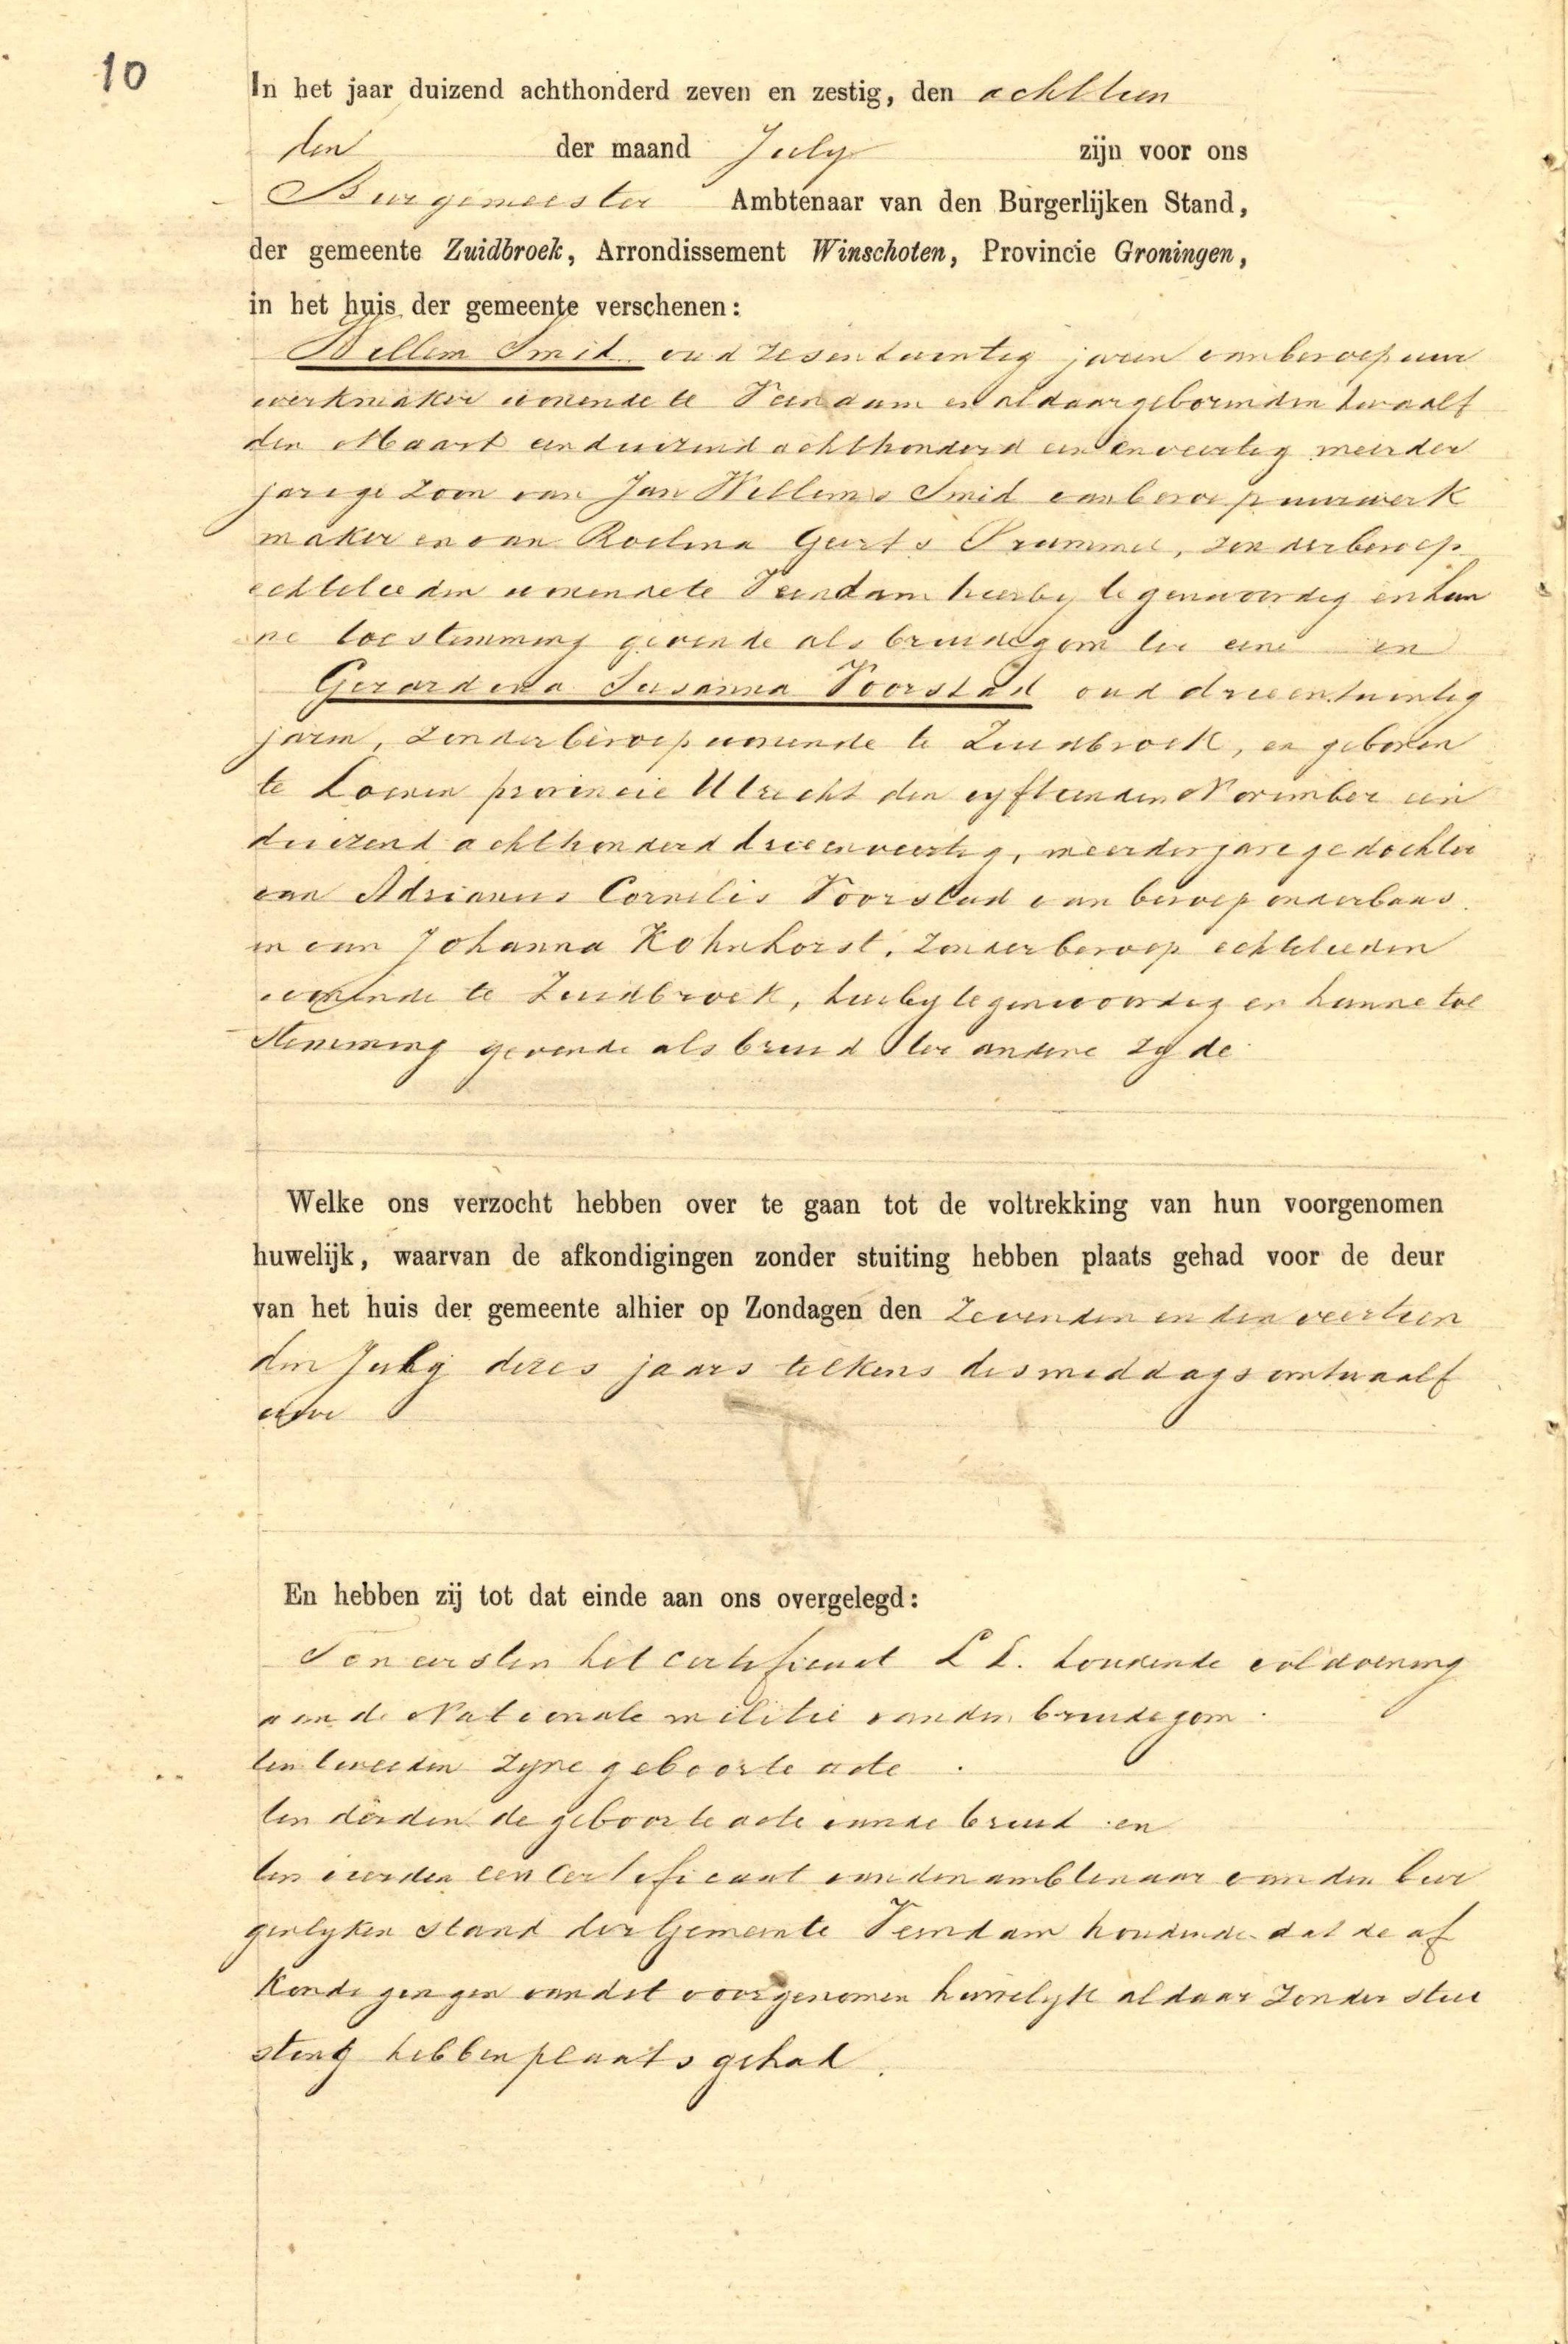 10
In het jaar duizend achthonderd zeven en zestig, den achttien
den der maand July zijn voor ons
Burgemeester Ambtenaar van den Burgerlijken Stand,
der gemeente Zuidbroek, Arrondissement Winschoten, Provincie Groningen,
in het huis der gemeente verschenen:
Willem Smit oud zesentwintig jaren van beroep uur
werkmaker wonende te Veendam en aldaar geboren den twaalf
den Maart eenduizend achthonderd een en veertig meerder
jarige zoon van Jan Willems Smid van beroep uurwerk
maker en van Roelina Geerts zonder beroep
echtelieden wonende te Veendam hierby tegenwoordig en hun
ne toestemming gevende als bruidegom ter eene en
Gerardina Susanna Voorstad oud drieentwintig
jaren, zonder beroep wonende te Zuidbroek, en geboren
te Loenen provincie Utrecht den vyftienden November een
duizend achthonderd drieenveertig, meerderjarige dochter
van Adrianus Cornelis Voorstad van beroep onderbaas
en van Johanna Kohnhorst, zonder beroep echtelieden
wonende te Zuidbroek, hierby tegenwoordig en hunne toe
stemming gevende als bruid ter andere zyde
Welke ons verzocht hebben over te gaan tot de voltrekking van hun voorgenomen
huwelijk, waarvan de afkondigingen zonder stuiting hebben plaats gehad voor de deur
van het huis der gemeente alhier op Zondagen den zevenden en den veertien
den July dezes jaars telkens des middags om twaalf
ure
En hebben zij tot dat einde aan ons overgelegd:
Ten eersten het certificaat L L. houdende voldoening
aan de Nationale militie van den bruidegom.
ten tweeden zyne geboorte acte.
ten derden de geboorte acte van de bruid en
ten vierden een certificaat van den ambtenaar van den bur
gerlyken stand der Gemeente Veendam houdende dat de af
kondigingen van dit voorgenomen huwelyk aldaar zonder stui
ting hebben plaats gehad.